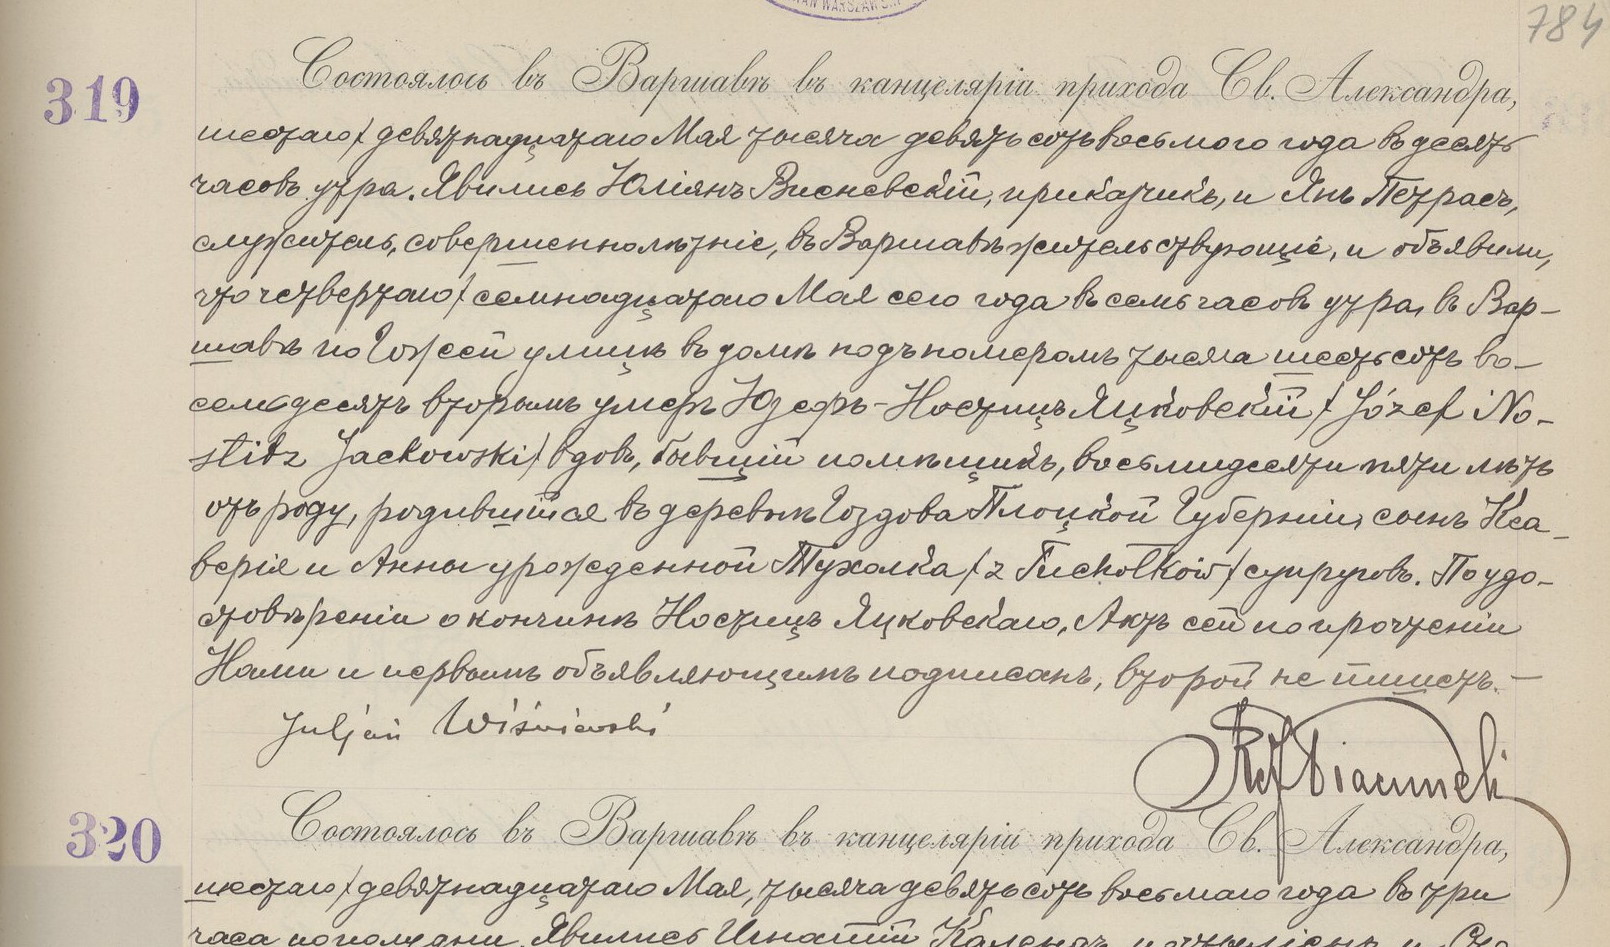 784
319
Состоялось въ Варшавѣ въ канцеляріи прихода Св. Александра,
шестаго/девятнадцатаго Мая тысяча девятьсотъ восьмого года въ десять
часовъ утра. Явились Юліянъ Висневскій, прикащикъ, и Янъ Петрасъ,
служитель, совершеннолѣтніе, въ Варшавѣ жительствующіе, и объявили,
что четвертаго/семнадцатаго Мая сего года въ семь часовъ утра, въ Вар-
шавѣ по Гожей улицѣ въ домѣ подъ номеромъ тысяча шестьсотъ во-
семьдесятъ вторымъ умеръ Юзефъ-Ностицъ Яцковскій /Józef No-
stitz Jackowski/ вдовъ, бывшій помѣщикъ, восьмидесяти пяти лѣтъ
отъ роду, родившійся въ деревнѣ Гоздова Плоцкой Губерніи, сынъ Кса-
верія и Анны урожденной Тухолка /z Tuchołków/ супруговъ. По удо-
стовѣреніи о кончинѣ Ностицъ Яцковскаго, Актъ сей по прочтеніи
Нами и первымъ объявляющимъ подписанъ, второй не пишетъ. —
Juljan Wiśniewski
320
Состоялось въ Варшавѣ въ канцеляріи прихода Св. Александра,
шестаго/девятнадцатаго Мая, тысяча девятьсотъ восьмаго года въ три
часа пополудни. Явились Игнатій